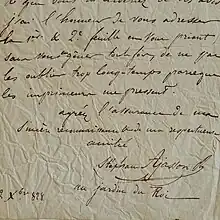 j'ai l'honneur de vous adresser
la 1ère & 2e feuille en vous priant
sans vous gêner toutefois de ne pas
les oublier trop longtemps parceque
les imprimeurs me pressent.
agréez l'assurance de ma
sincère reconnaissance et de ma respectueuse
amitié
Stéphane Ajasson
au jardin du Roi
Xbre 828